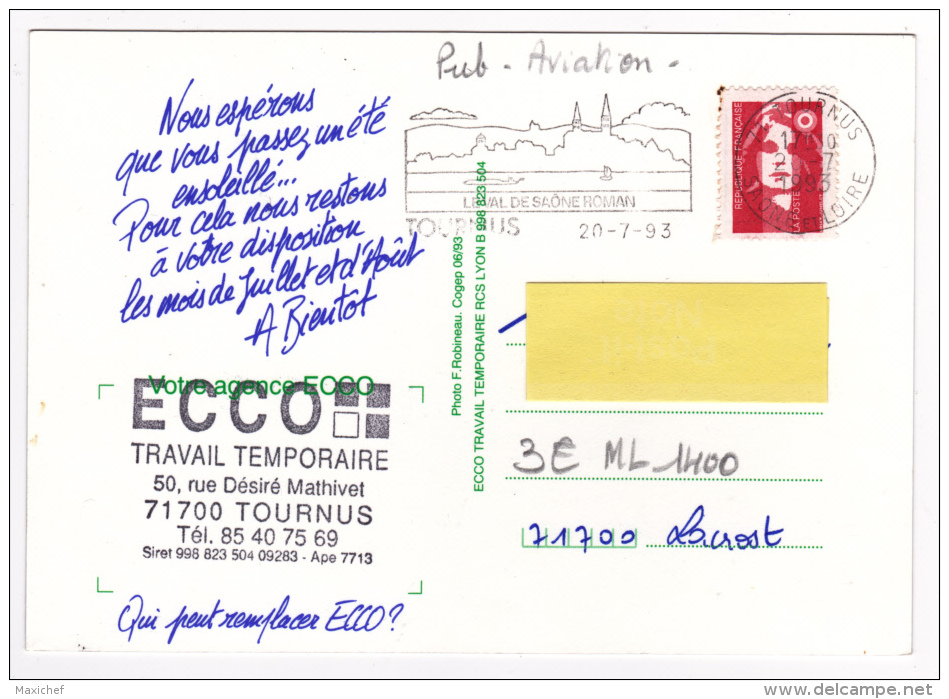 Pub - Aviation -
Nous espérons
que vous passez un été
ensoleillé...
Pour cela nous restons
à votre disposition
les mois de Juillet et d'Août
A Bientot
LE VAL DE SAÔNE ROMAN
TOURNUS 20-7-93
REPUBLIQUE FRANÇAISE
LA POSTE
71 TOURNUS
1993
SAONE ET LOIRE
Photo F. Robineau. Cogep 06/93
ECCO TRAVAIL TEMPORAIRE RCS LYON B 998 823 504
Votre agence ECCO
ECCO
TRAVAIL TEMPORAIRE
50, rue Désiré Mathivet
71700 TOURNUS
Tél. 85 40 75 69
Siret 998 823 504 09283 - Ape 7713
Qui peut remplacer ECCO?
3E ML 1400
71700 Lacrost
Maxichef
http://www.delcampe.net